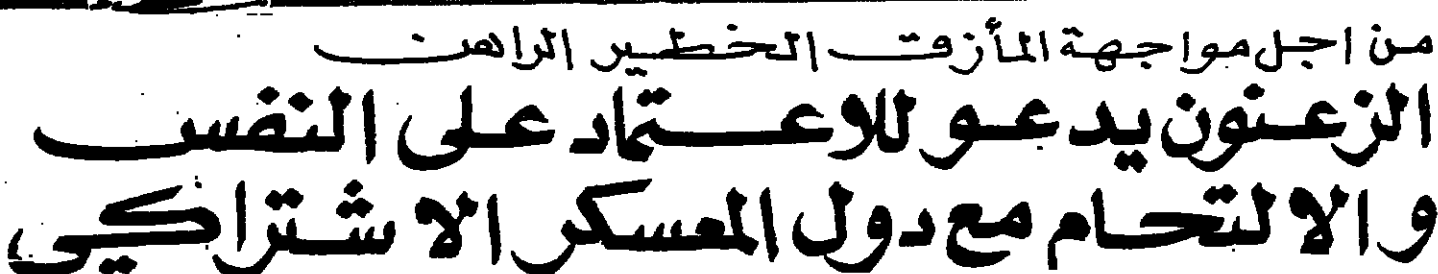 من اجل مواجهة المأزق الخطير الراهن
الزعنون يدعو للاعتماد على النفس
والالتحام مع دول المعسكر الاشتراكي